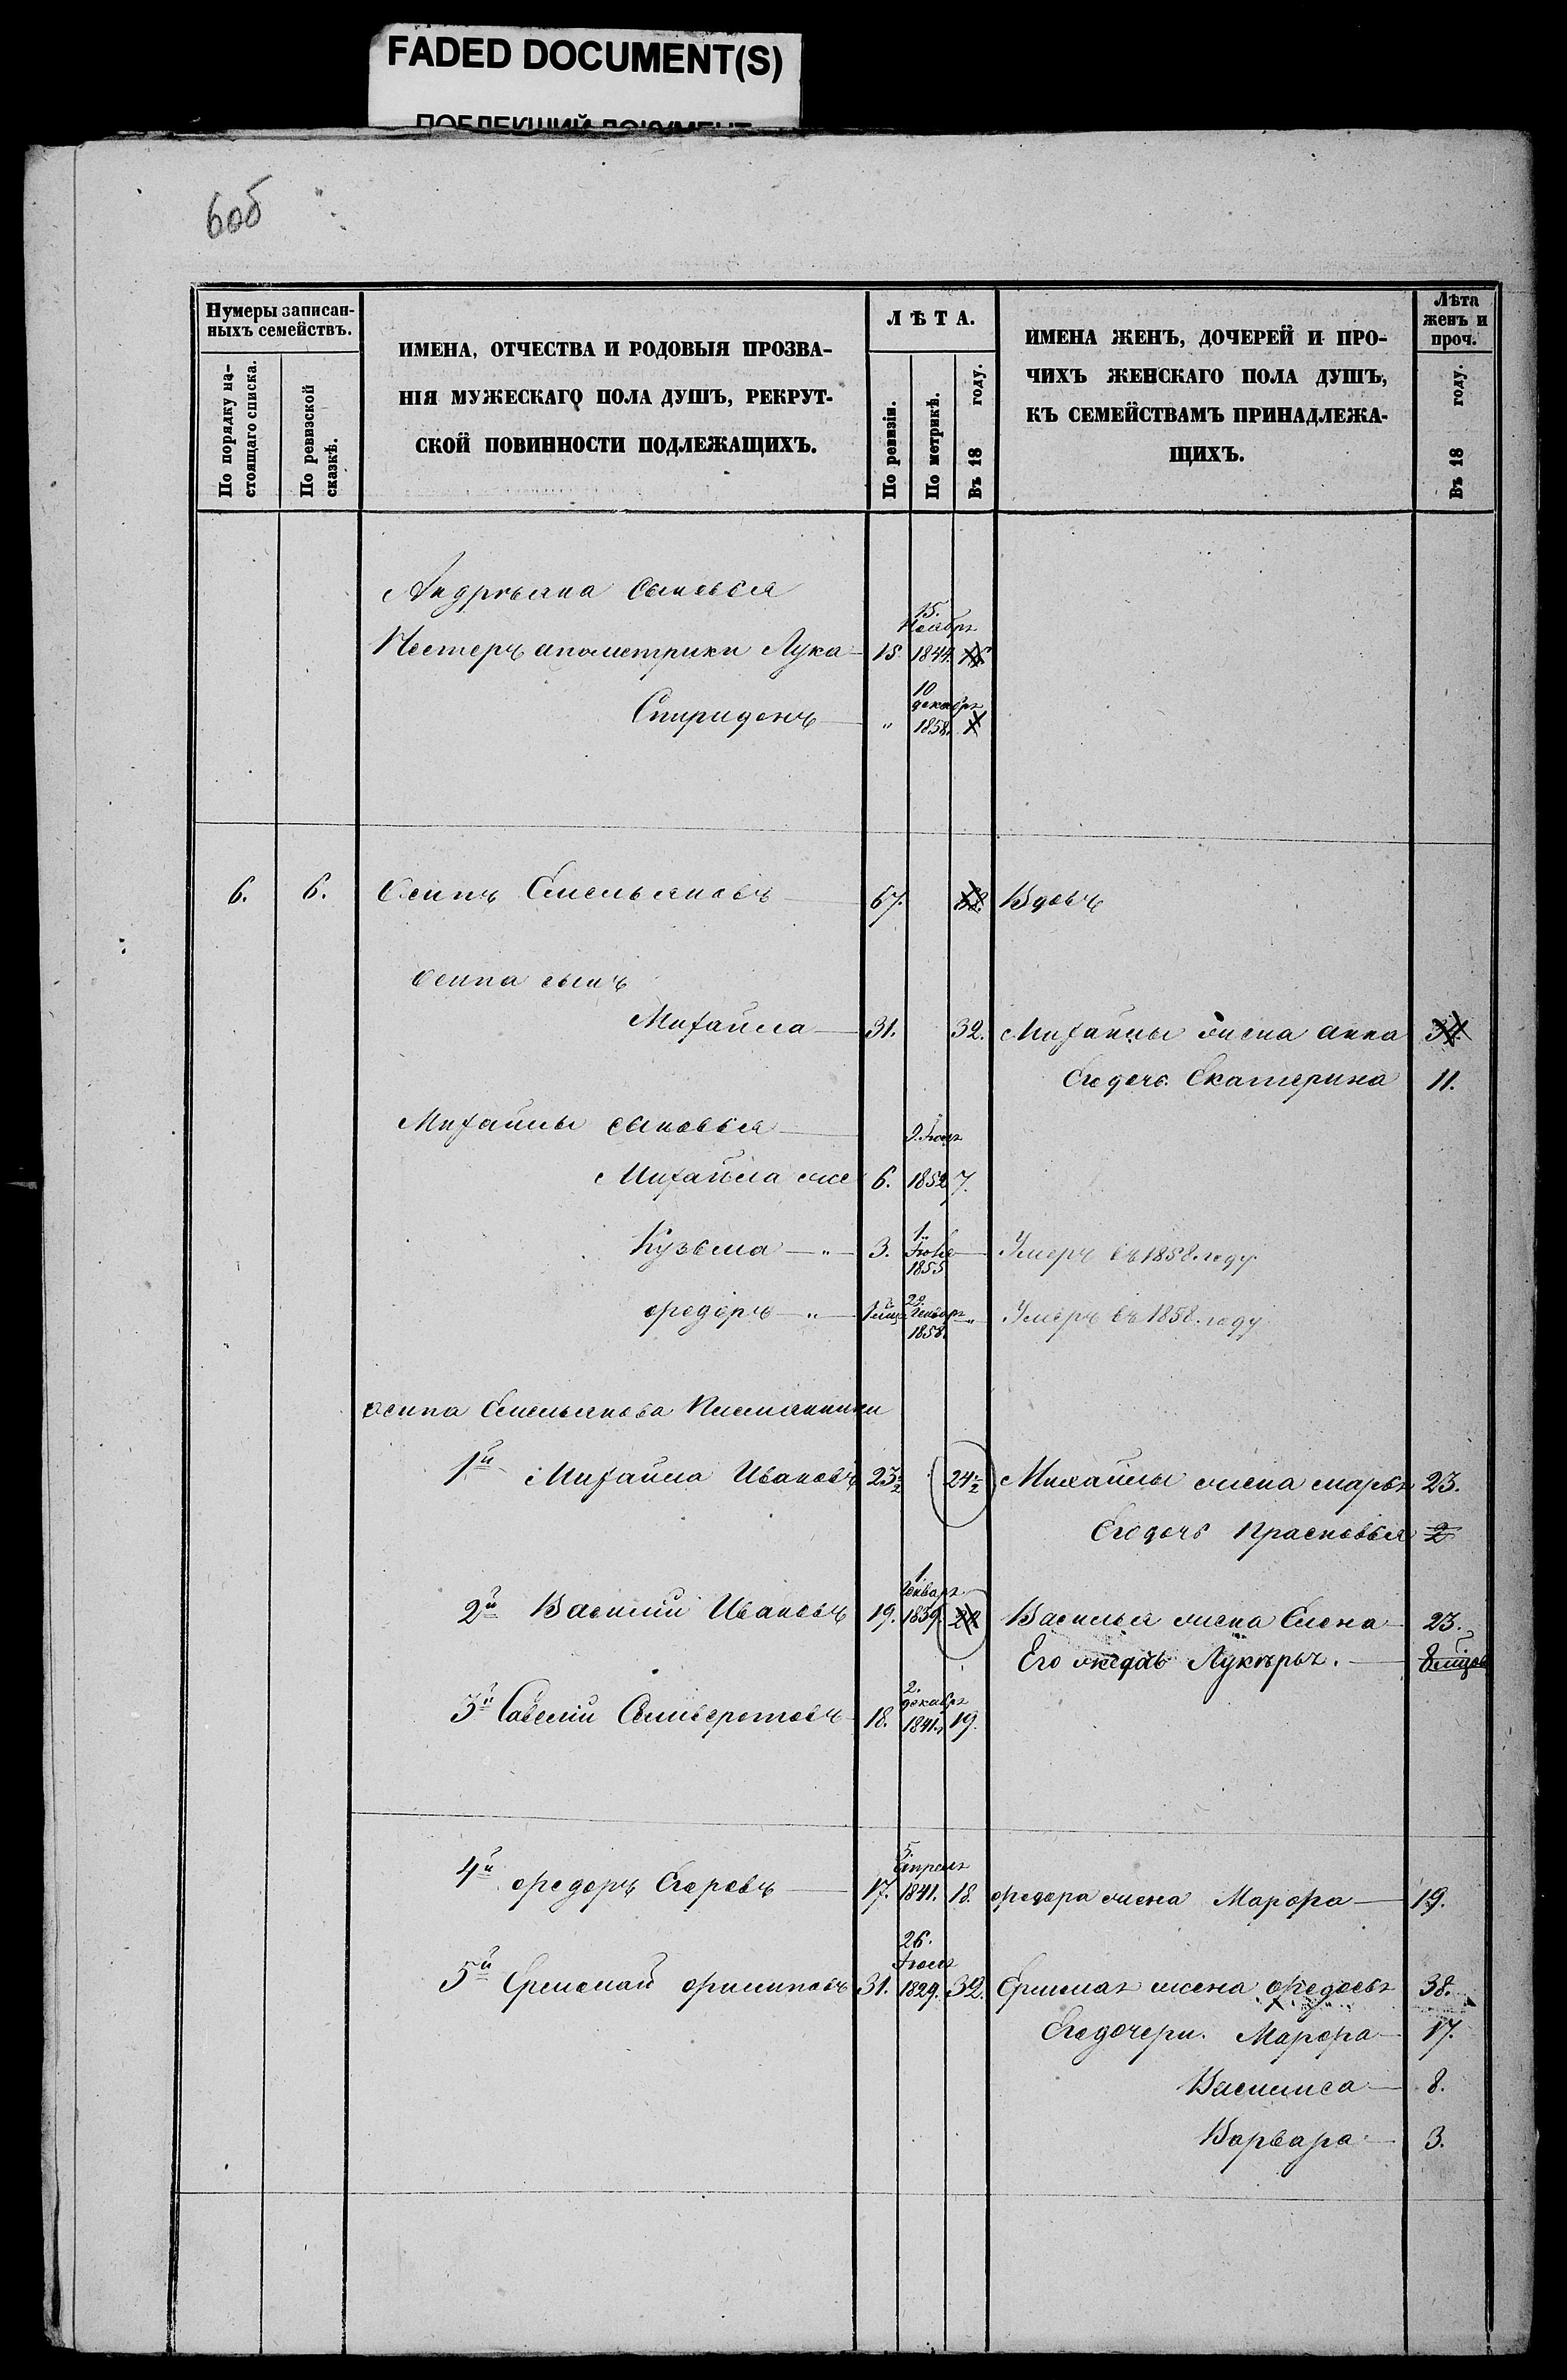 FADED DOCUMENT(S)
ПОБЛЕКШИЙ ДОКУМЕНТ
6об
Нумеры записан-
ныхъ семействъ.
По порядку на-
стоящаго списка.
По ревизской
сказкѣ.
ИМЕНА, ОТЧЕСТВА И РОДОВЫЯ ПРОЗВА-
НІЯ МУЖЕСКАГО ПОЛА ДУШЪ, РЕКРУТ-
СКОЙ ПОВИННОСТИ ПОДЛЕЖАЩИХЪ.
ЛѢТА.
По ревизіи.
По метрикѣ.
Въ 18 году.
ИМЕНА ЖЕНЪ, ДОЧЕРЕЙ И ПРО-
ЧИХЪ ЖЕНСКАГО ПОЛА ДУШЪ,
КЪ СЕМЕЙСТВАМЪ ПРИНАДЛЕЖА-
ЩИХЪ.
Лѣта
женъ и
проч.
Въ 18 году.
Андрѣяна сыновья
15.
Ноября
Нестеръ апометрики Лука 15. 1844.
10
декабря
Спиридонъ " 1858.
6. 6. Осипъ Емельяновъ 67. 68. Вдовъ
Осипа сынъ
Михайла 31. 32. Михайлы жена Анна 34.
Его дочь Екатерина 11.
Михайлы сыновья 9. Іюля
Михайла 6. 1852 7.
Кузьма " 3. 1. 1855 Умеръ въ 1858. году
Федоръ " 22 Генваря 1858. " Умеръ въ 1858. году
Осипа Емельянова Племянники
1й Михайла Ивановъ 23½ 24½ Михайлы жена Марья 23.
Его дочь Прасковья 2
1.
Генваря
2й Василій Ивановъ 19. 1839. Василья жена Елена 23.
Его Лукерья.
2.
декабря
3й Савелій Селиверстовъ 18. 1841. 19.
5.
Апреля
4й Федоръ Егоровъ 17. 1841. 18. Федора жена Марфа 19.
26.
Іюля
5й Ермолай Филиповъ 31. 1829. 32. Ермолая жена Федосья 38.
Его дочери. Марфа 17.
Василиса 8.
Варвара 3.